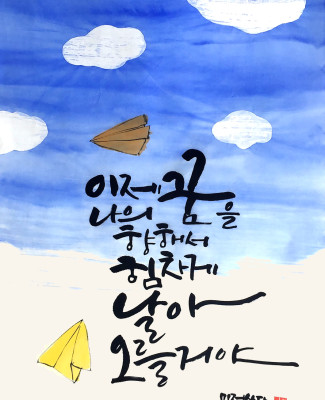 이제 꿈을
나의
향해서
힘차게
날아
오를거야